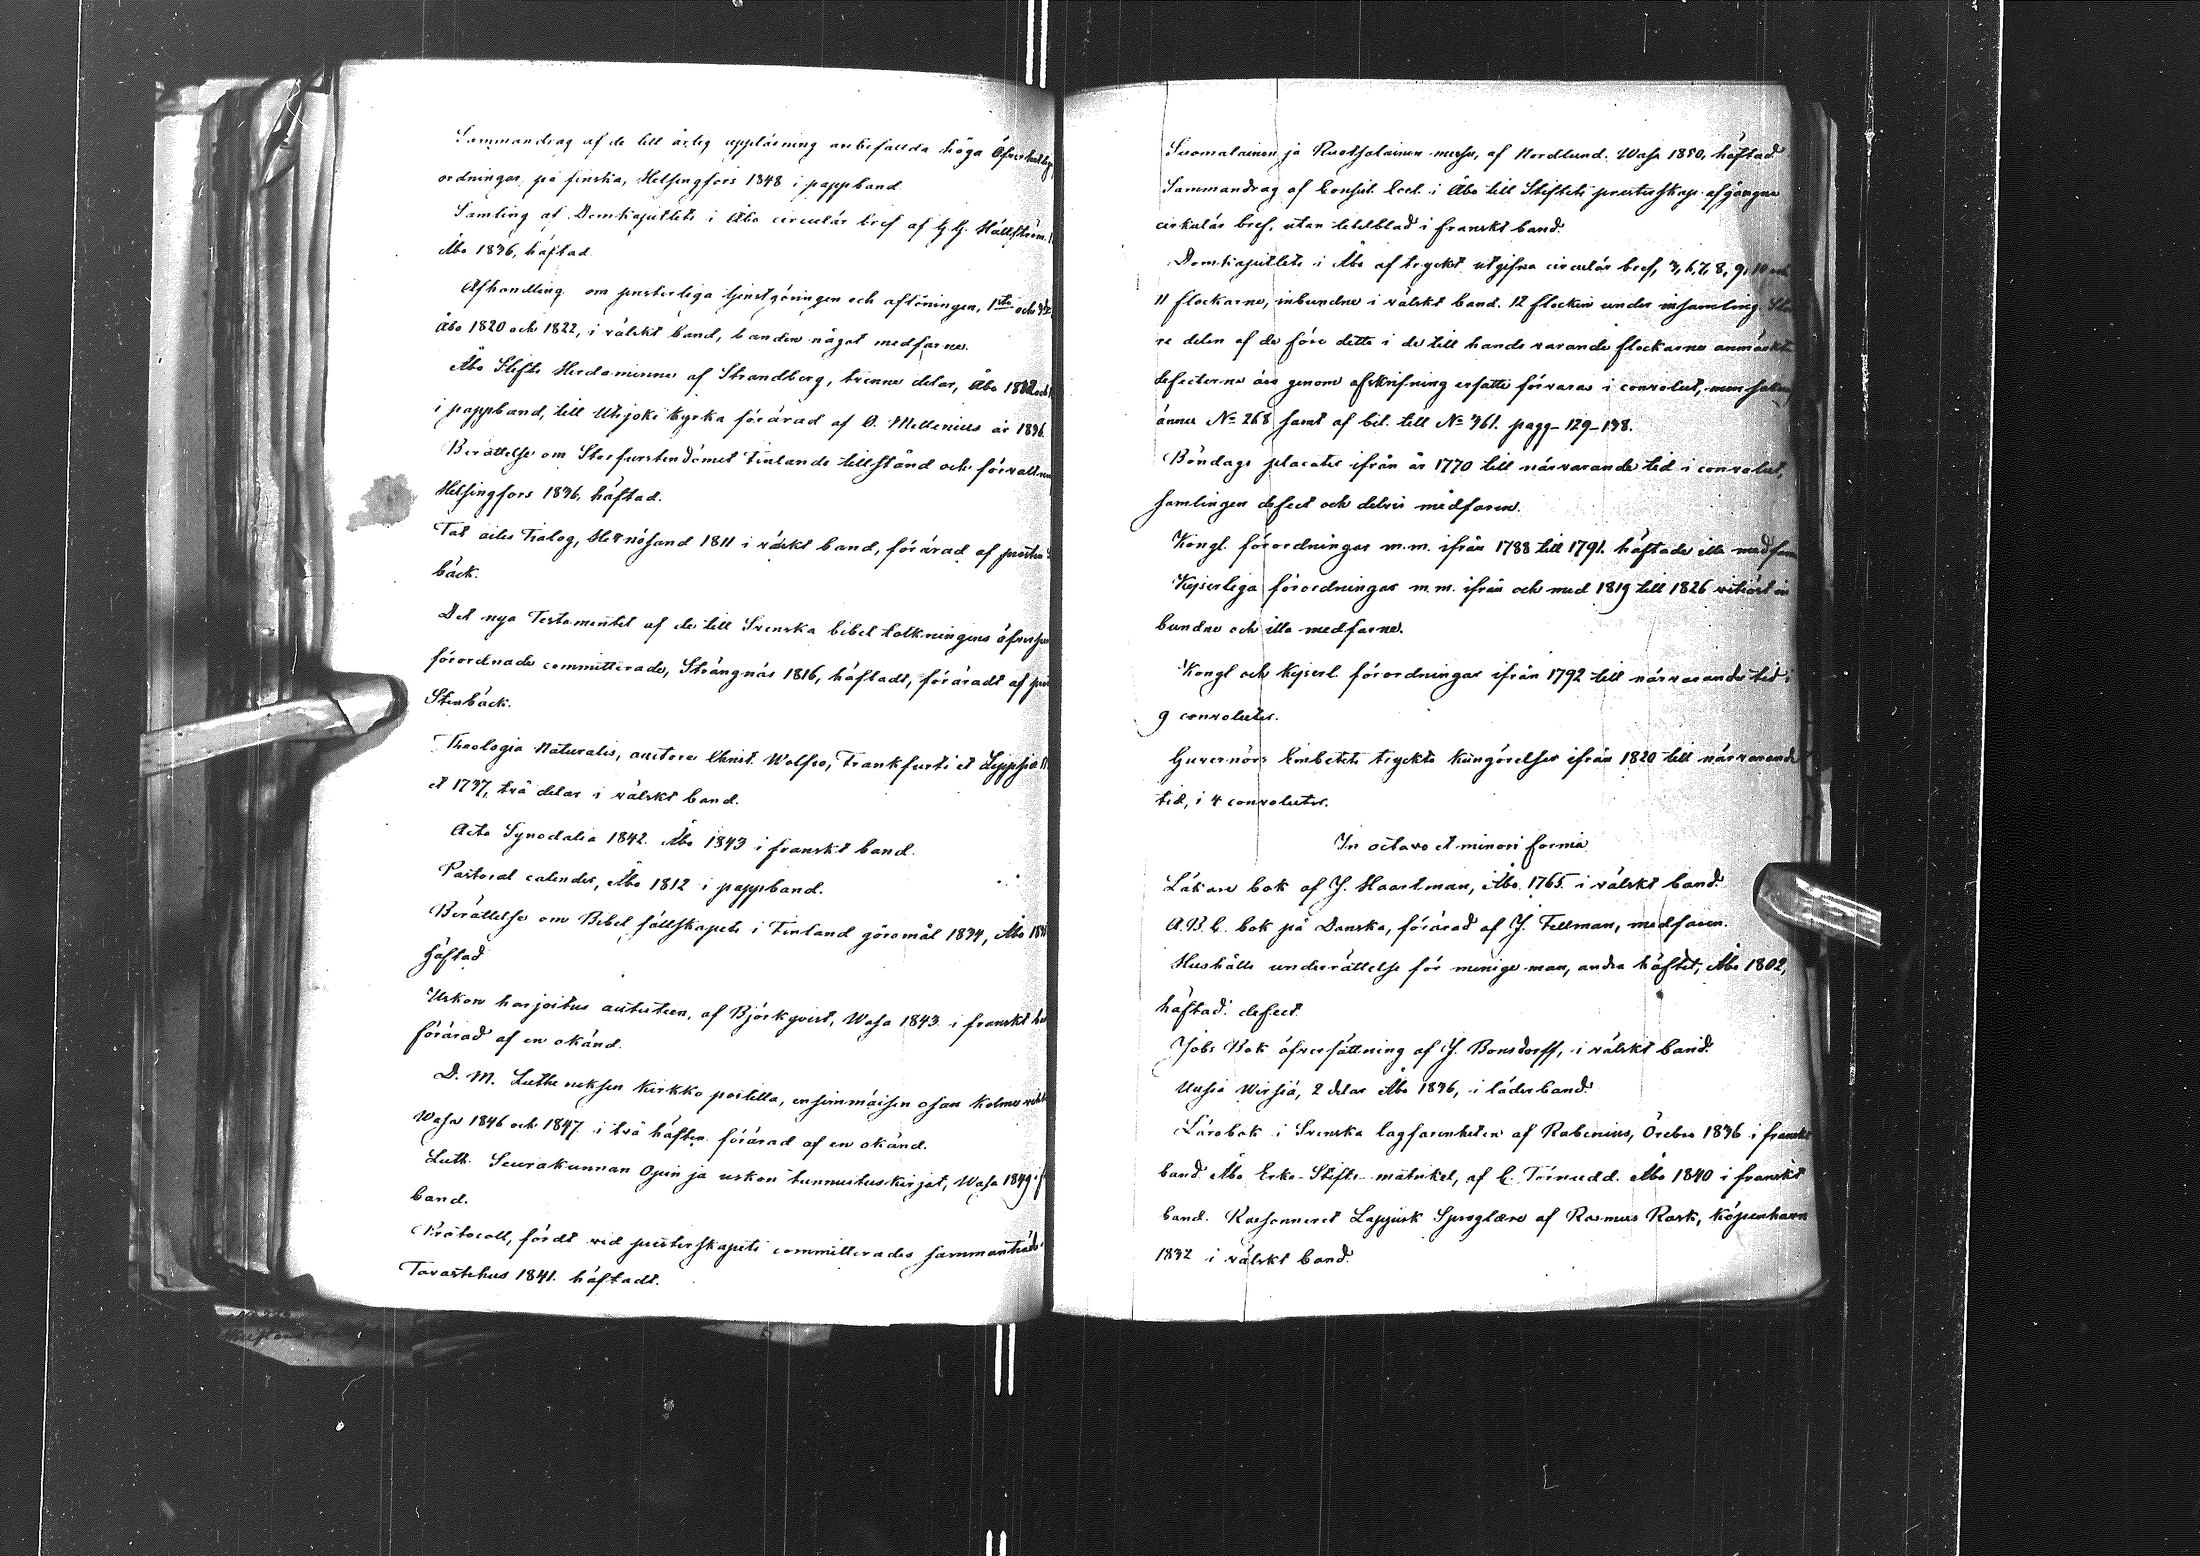 Sammandrag af de till årlig uppläsning anbefallda höga
ordningar på finska, Helsingfors 1848 i pappband.
Samling af Domkapitlets i Åbo circulär bref af G. G. Hällström.
Åbo 1836, häftad.
Afhandling om presterliga tjenstgöringen och aflöningen, 1sta och
Åbo 1820 och 1822, i välskt band, banden något medfarne.
Åbo Stifts Herdaminne af Strandberg, trenne delar, Åbo
i pappband, till Utsjoki kyrka förärad af O. Mellenius år 1836.
Berättelse om Storfurstendömet Finlands tillstånd och
Helsingfors 1836. häftad.
Tal Hernösand 1811 i välskt band, förärad af
bäck.
Det nya Testamentet af de till Svenska bibel tolkningens
förordnade committerade, Strängnäs 1816, häftadt, föräradt af
Stenbäck.
Theologia Naturalis, auctore Christ. Wolfio, Frankfurti et
et 1737, två delar i välskt band.
Acta Synodalia 1842. Åbo 1843 i franskt band.
Pastoral calender, Åbo 1812 i pappband.
Berättelse om Bibel sällskapets i Finland göromål 1834, Åbo
häftad
Uskon harjoitus autuuteen, af Björkqvist, Wasa 1843 i franskt
förärad af en okänd.
D. M. Lutheruksen Kirkko postilla, ensimmäisen osan kolme
Wasa 1846 och 1847 i två häften förärad af en okänd.
Luth. Seurakunnan Opin ja uskon tunnustuskirjat, Wasa 1849
band.
Protocoll, fördt vid presterskapets committerades sammanträde
Tavastehus 1841. häftadt.
Suomalainen ja Ruotsalainen messu, af Nordlund. Wasa 1850, häftad
Sammandrag af Consist. Eccl. i Åbo till Stiftets presterskap afgångne
cirkulär bref, utan titelblad i franskt band.
Domkapitlets i Åbo af tryckt utgifna circulär bref, 3, 6, 7, 8, 9, 10 och
11 flockarne, inbundne i välskt band. 12 flocken under insamling.
re delen af de före detta i de till hands varande flockarne anmärkta
defecterne äro genom afskrifning ersatte förvaras i convolut, men
ännu No 268 samt af bil. till No 361. pagg. 129-138.
Böndags placater ifrån år 1770 till närvarande tid i convolut,
samlingen defect och delvis medfaren.
Kongl. förordningar m.m. ifrån 1788 till 1791. häftade illa
Kejserliga förordningar m.m. ifrån och med 1819 till 1826
bundne och illa medfarne.
Kongl och Kejserl. förordningar ifrån 1792 till närvarande tid i
9 convoluter.
Guvernörs Embetets tryckta kungörelser ifrån 1820 till närvarande
tid, i 4 convoluter.
In octavo et minori forma
Läkare bok af J. Haartman, Åbo 1765 i välskt band.
A.B.C. bok på Danska, förärad af J. Fellman, medfaren.
Hushålls underrättelse för menige man, andra häftet, Åbo 1802,
häftad. defect.
Jobs Bok öfversättning af J. Bonsdorff, i välskt band.
Uusia Wirsiä, 2 delar Åbo 1836, i läderband.
Lärobok i Svenska lagfarenheten af Rabenius, Örebro 1836 i franskt
band Åbo Erke-Stifts-matrikel, af C. Törnudd. Åbo 1840 i franskt
band. Raesonneret Lappisk Sproglære af Rasmus Rask, Köpenhavn
1832 i välskt band.